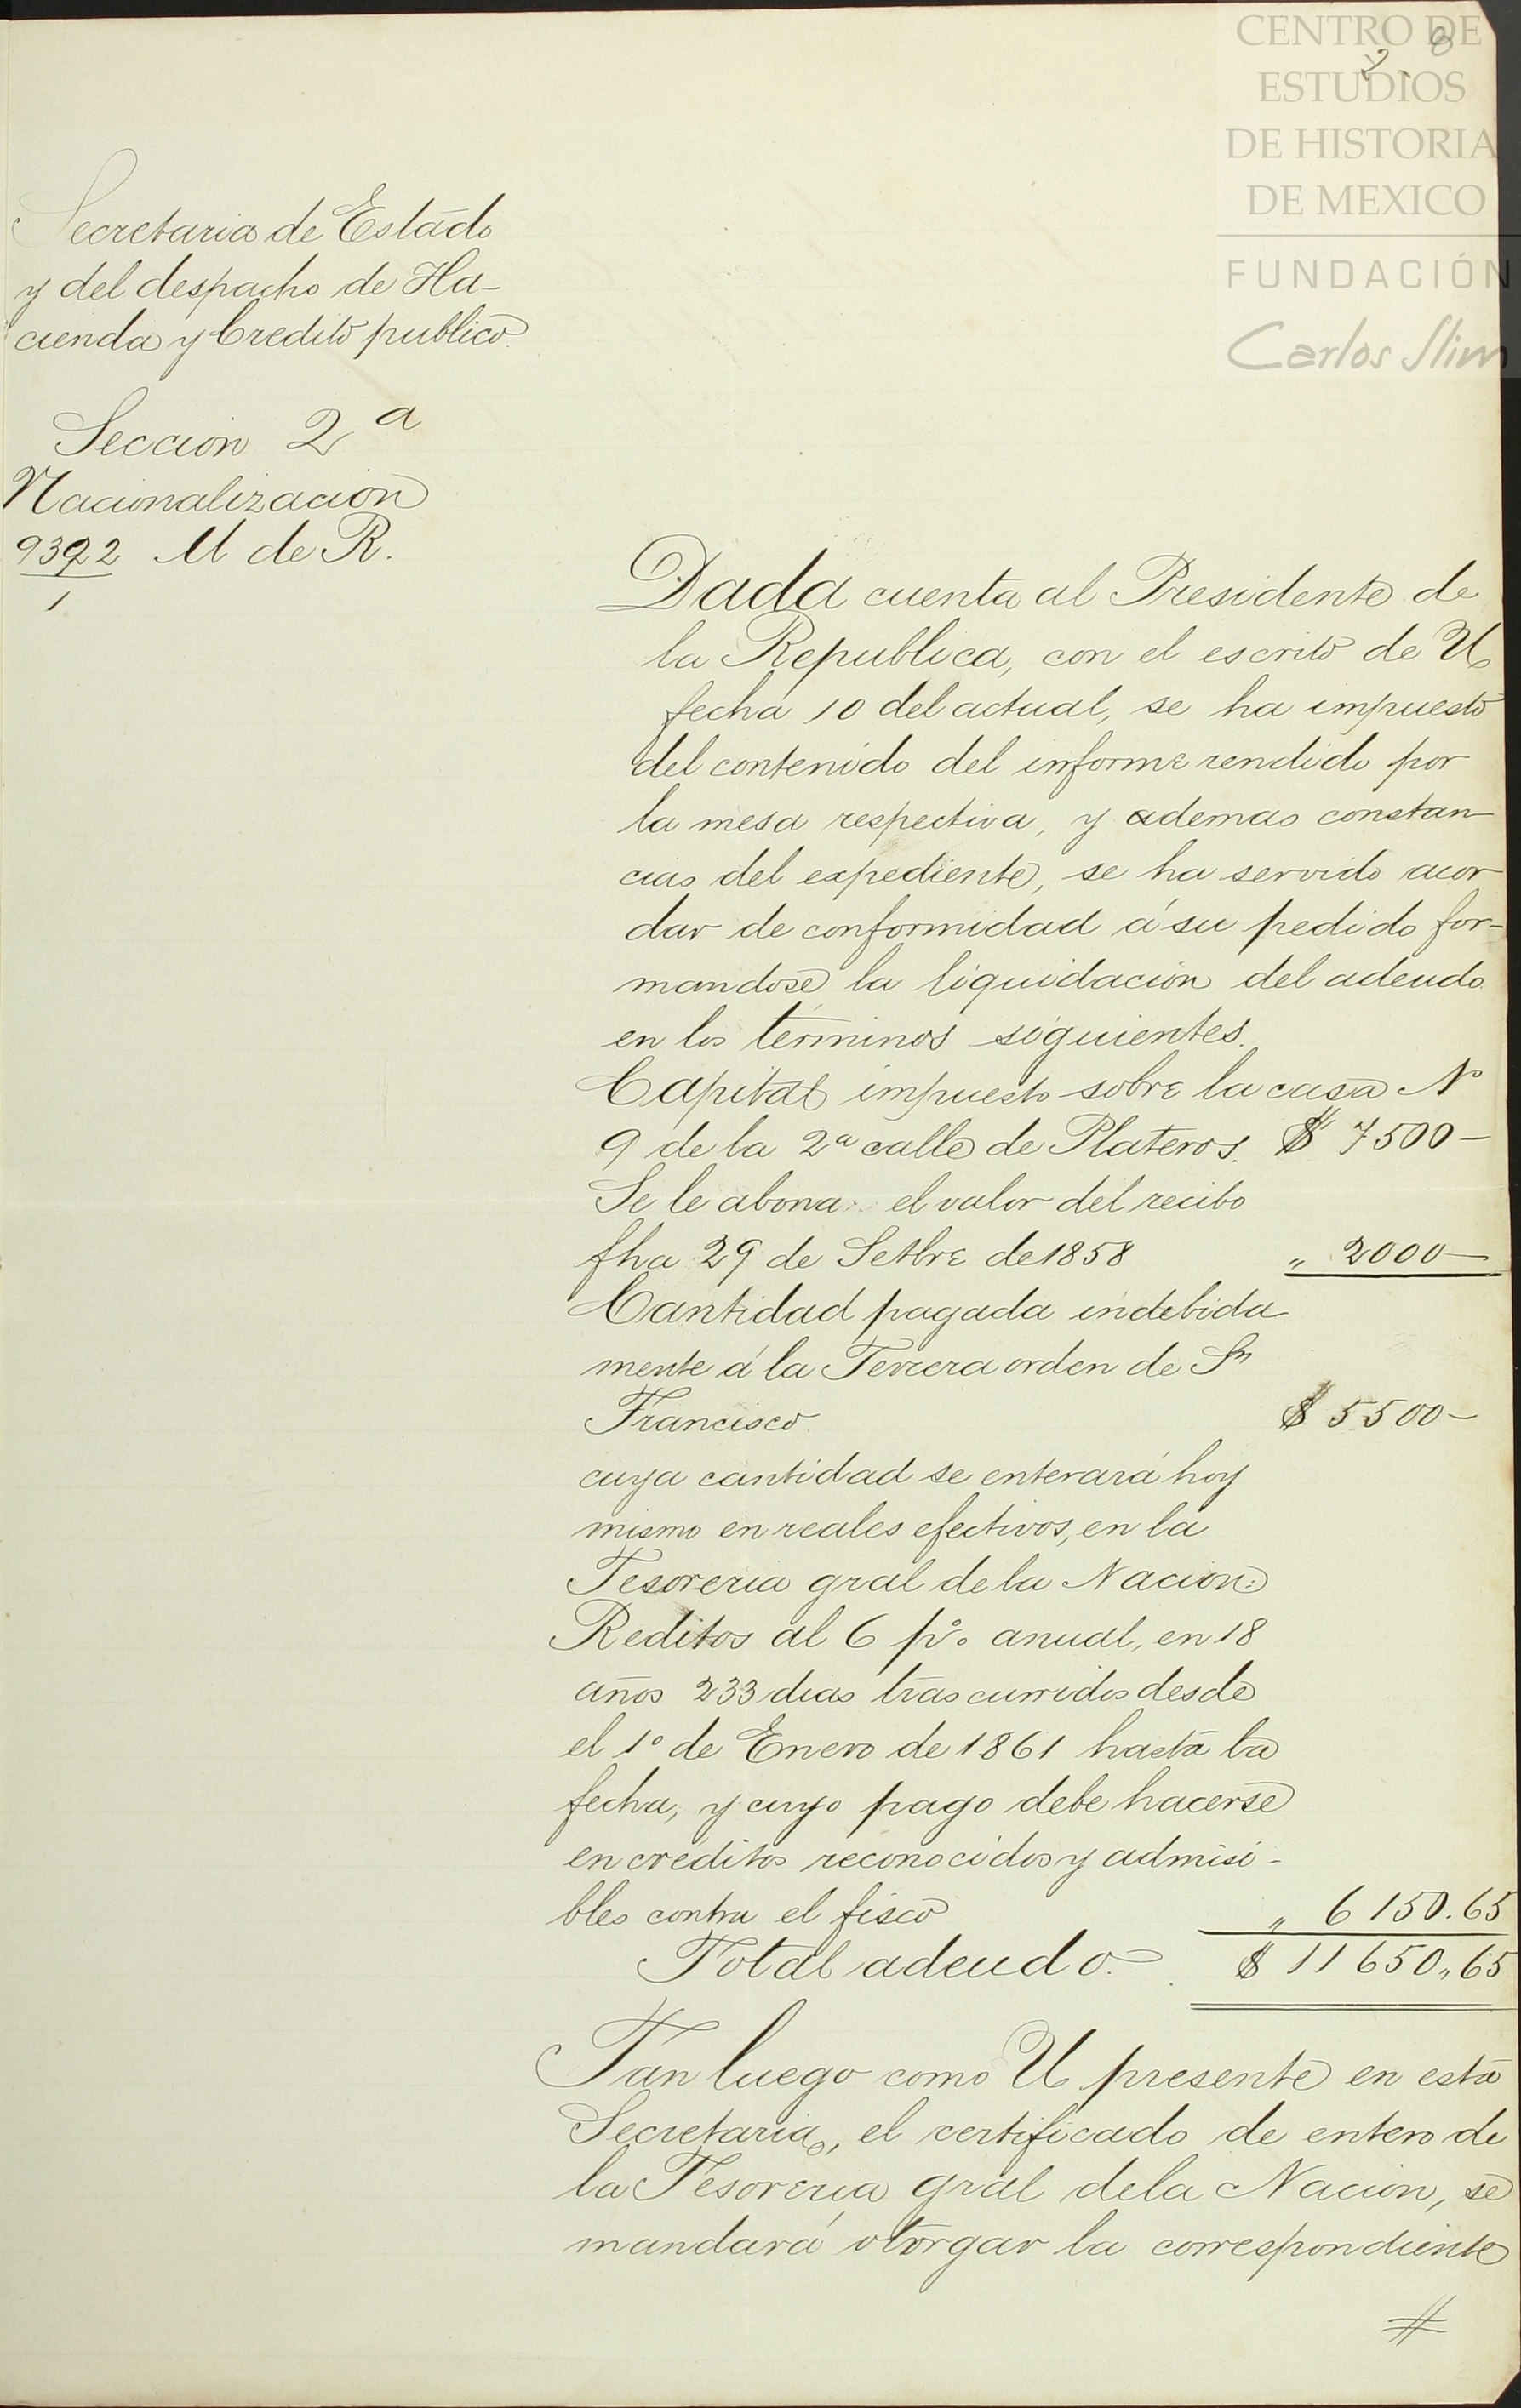 CENTRO DE
ESTUDIOS
DE HISTORIA
DE MEXICO
FUNDACIÓN
Carlos Slim
Secretaria de Estado
y del despacho de Ha-
cienda y Credito publico.
Seccion 2a
Nacionalizacion
9392 M de R.
1
Dada cuenta al Presidente de
la Republica, con el escrito de U
fecha 10 del actual, se ha impuesto
del contenido del informe rendido por
la mesa respectiva, y ademas constan-
cias del expediente, se ha servido acor-
dar de conformidad á su pedido for-
mandose la liquidacion del adeudo
en los términos siguientes.
Capital impuesto sobre la casa No
9 de la 2a calle de Plateros. $ 7500-
Se le abona el valor del recibo
fha 29 de Setbre de 1858 " 2000-
Cantidad pagada indebida
mente á la Tercera orden de Sn
Francisco. $ 5500-
cuya cantidad se enterará hoy
mismo en reales efectivos, en la
Tesoreria gral de la Nacion:
Reditos al 6 p% anual, en 18
años 233 dias trascurridos desde
el 1o de Enero de 1861 hasta la
fecha, y cuyo pago debe hacerse
en créditos reconocidos y admisi-
bles contra el fisco " 6150.65
Total adeudo. $ 11650,,65
Tan luego como U presente en esta
Secretaria, el certificado de entero de
la Tesoreria gral de la Nacion, se
mandará otorgar la correspondiente
#